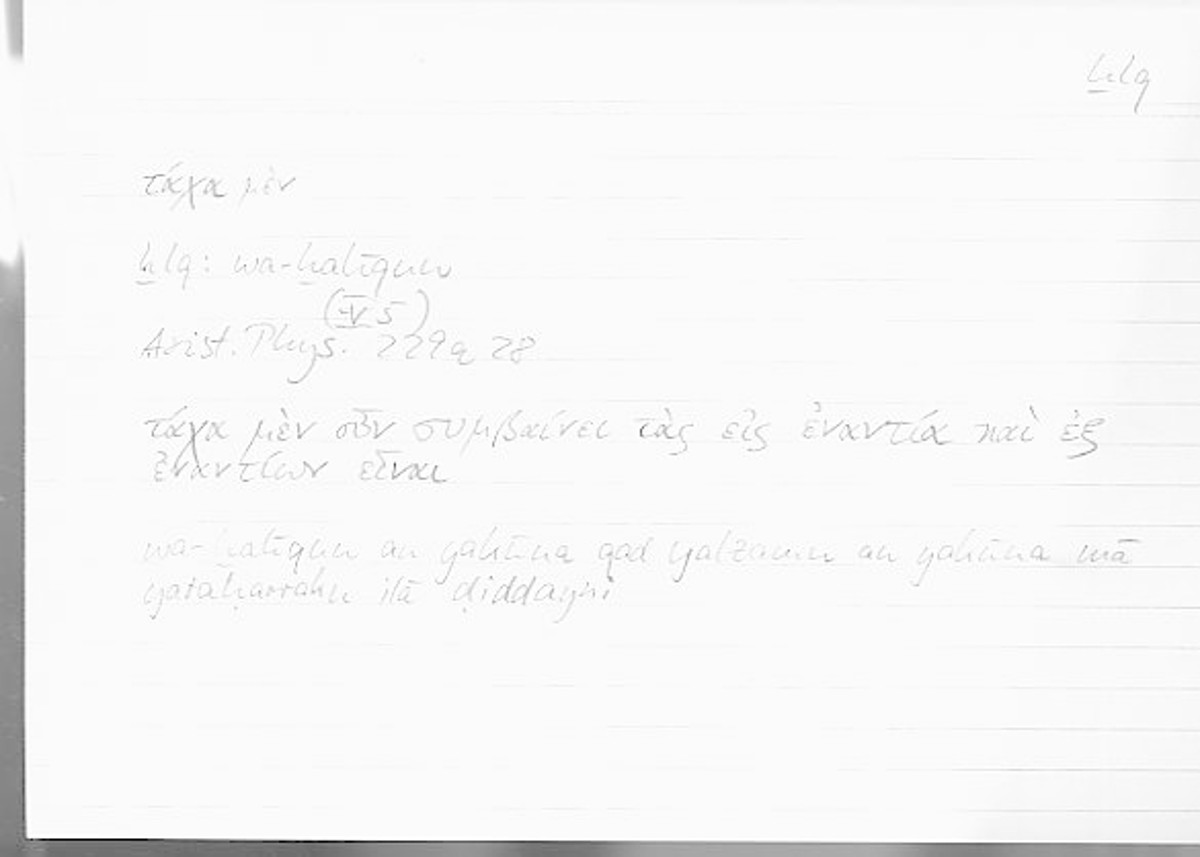 ḫlq
τάχα μὲν
ḫlq: wa-ḫalīqun
(V 5)
Arist. Phys. 229a 28
τάχα μὲν οὖν συμβαίνει τὰς εἰς ἐναντία καὶ ἐξ
ἐναντίων εἶναι
wa-ḫalīqun an yakūna qad yalzamu an yakūna mā
yataḥarraku ilā ḍiddayni